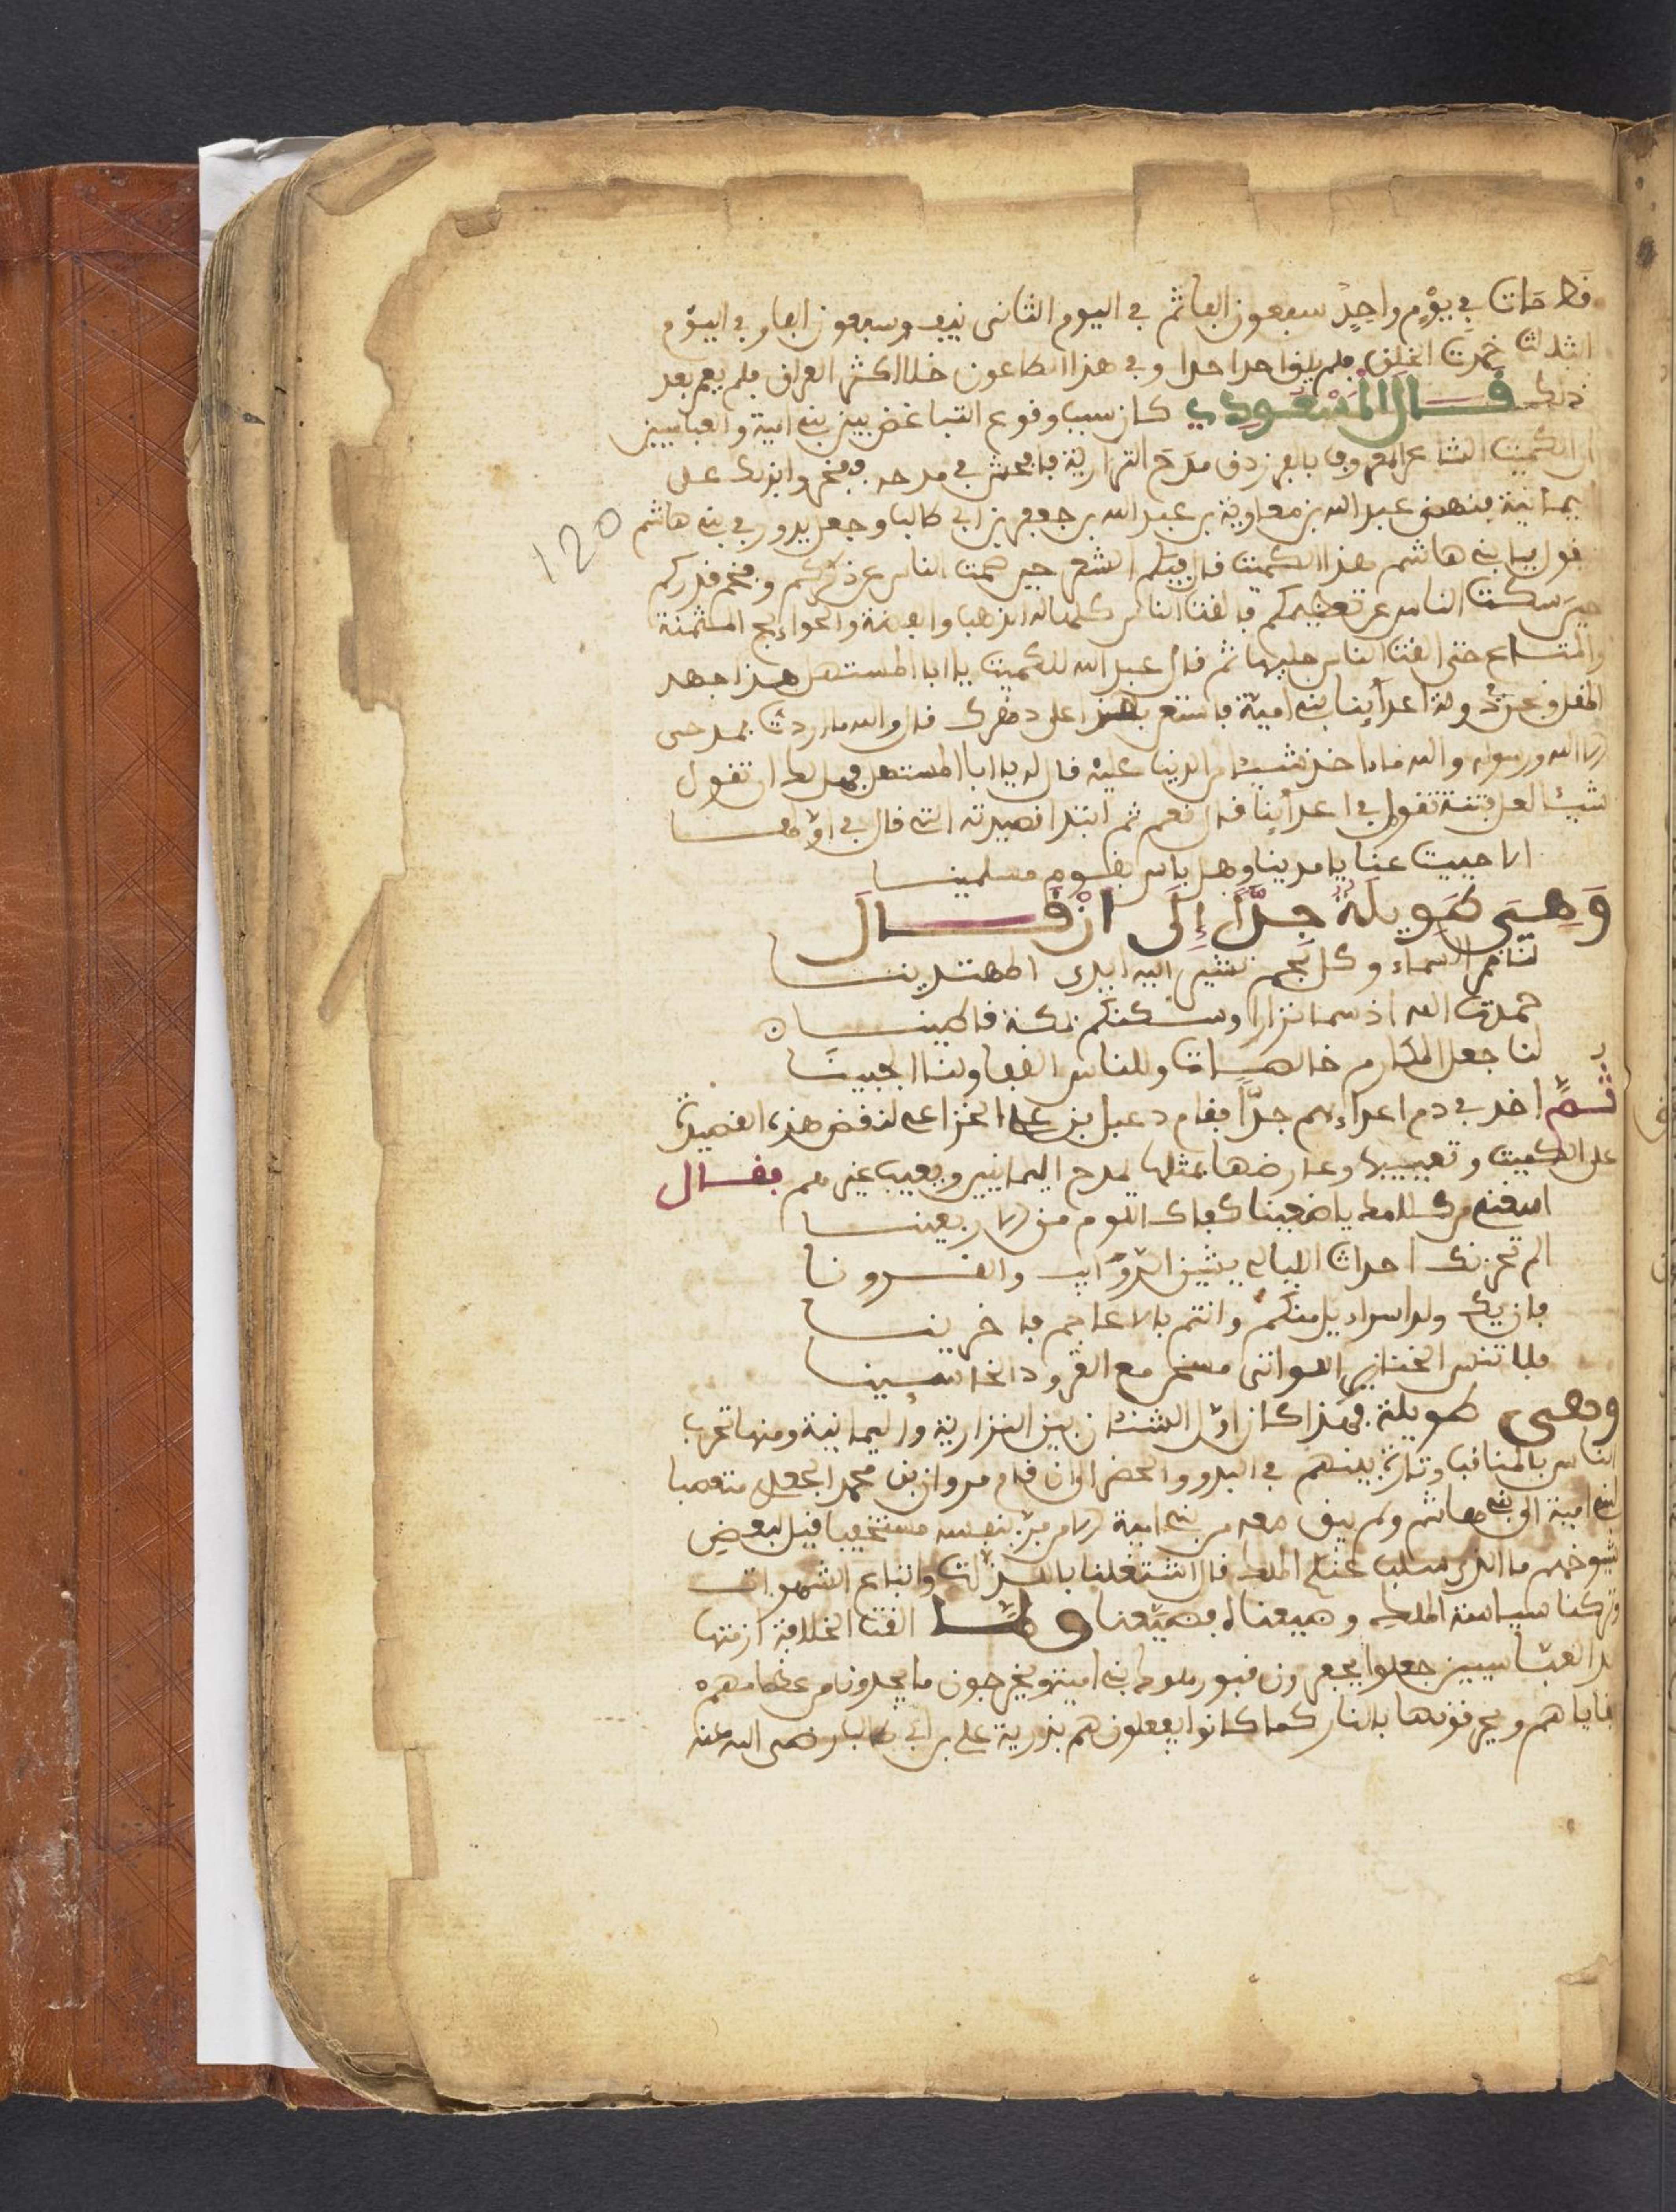 فط مات في يوم واحد سبعون الفا ثم في اليوم الثاني نيف وسبعون الفا وفي اليوم
الثالث خمدت الخلق فلم يلو احد احدا وفي هذا الطاعون خلا اكثر العراق فلم يعم بعد
ذلك قال المسعودي كان سبب وقوع التباغض بين بني امية والعباسيين
ان الكميت الشاعر المعروف بالفرزدق مدح النزارية فافحش في مدحه ففخروا بذلك على
يمانية فنهض عبد الله بن معاوية بن عبد الله بن جعفر بن ابي طالب وجعل يدور في بني هاشم
120
يقول يا بني هاشم هذا الكميت قال فيكم الشعر حين صمت الناس عن ذكركم وفخم قدركم
حين سكت الناس عن تعظيمكم فالفت الناس كلمالة الذهب والفضة والحوايج المثمنة
والمتاع حتى الفت الناس حليها ثم قال عبد الله للكميت يا ابا المستهل هذا جهد
المقل ونحن في دولة اعداينا بني امية فاستعن بهذا على دهرك قال والله ما اردت بمدحي
الا الله ورسوله والله ما اخذ شيئا من الدنيا عليه قال له يا ابا المستهل فهل لك ان تقول
شيئا لعل فتنة تقول في اعداينا قال نعم ثم ابتدا قصيدته التي قال في اولها
الا حييت عنا يا مدينا وهل باس بقوم مسلمينا
وهي طويلة جدا الى ان قال
لنا قمر السماء وكل نجم تشير اليه ايدي المهتدينا
حمدت الله اذ سما نزارا وسكنكم بمكة قاطينا
لنا جعل المكارم خالصات وللناس القفا ولنا الجبينا
ثم اخذ في ذم اعداءهم جدا فقام دعبل بن علي الخزاعي لنقض هذه القصيدة
على الكميت وتعييبها وعارضها بمثلها يمدح اليمانيين ويعيب غيرهم فقال
افيقي من ملامك يا ضعينا كفاك اللوم من الاربعينا
الم تحزنك احداث الليالي يشيبن الذوايب والقرونا
فان يك ولد اسراديل منكم وانتم بالاعاجم فاخرينا
فلا تنس الخنازير اللواتي مسخن مع القرود الخاسيينا
وهي طويلة فهذا كان اول الشنئان بين النزارية واليمانية ومنها تحزب
الناس بالمناقب وثارت بينهم في البدو والحضر الى ان قام مروان بن محمد الجعدي متعصبا
لبني امية الى بني هاشم ولم يبق معه من بني امية الا من فر بنفسه مستخفيا فيل لبعض
شيوخهم ما الذي سلب عنكم الملك قال اشتغلنا باللذات واتباع الشهوات
وتركنا سياسة الملك وضيعناه فضيعنا ولما الفت الخلافة ازمتها
الى العباسيين جعلوا يحفرون قبور ملوك بني امية ويخرجون ما يجدون من عظامهم
بقاياهم ويحرقونها بالنار كما كانوا يفعلون هم بذرية علي بن ابي طالب رضي الله عنه